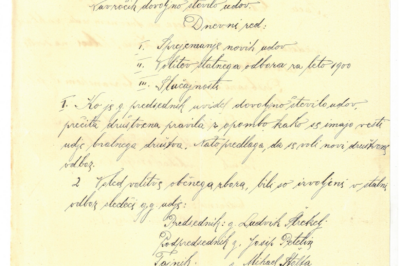 navzočih dovoljno število udov.
Dnevni red:
I. Sprejemanje novih udov
II. Volitev stalnega odbora za leto 1900
III. Slučajnosti
I. Ko je g. predsednik uvidel dovoljno število udov,
prečita društvena pravila z opombo kako se imajo vesti
udje bralnega društva. Nato predlaga, da se voli novi društveni
odbor.
2 Vsled volitve občnega zbora, bili so izvoljeni v stalni
odbor sledeči g.g. udje:
Predsednik: g. Ludovik
Podpredsednik g. Josip
Tajnik „ Mihael